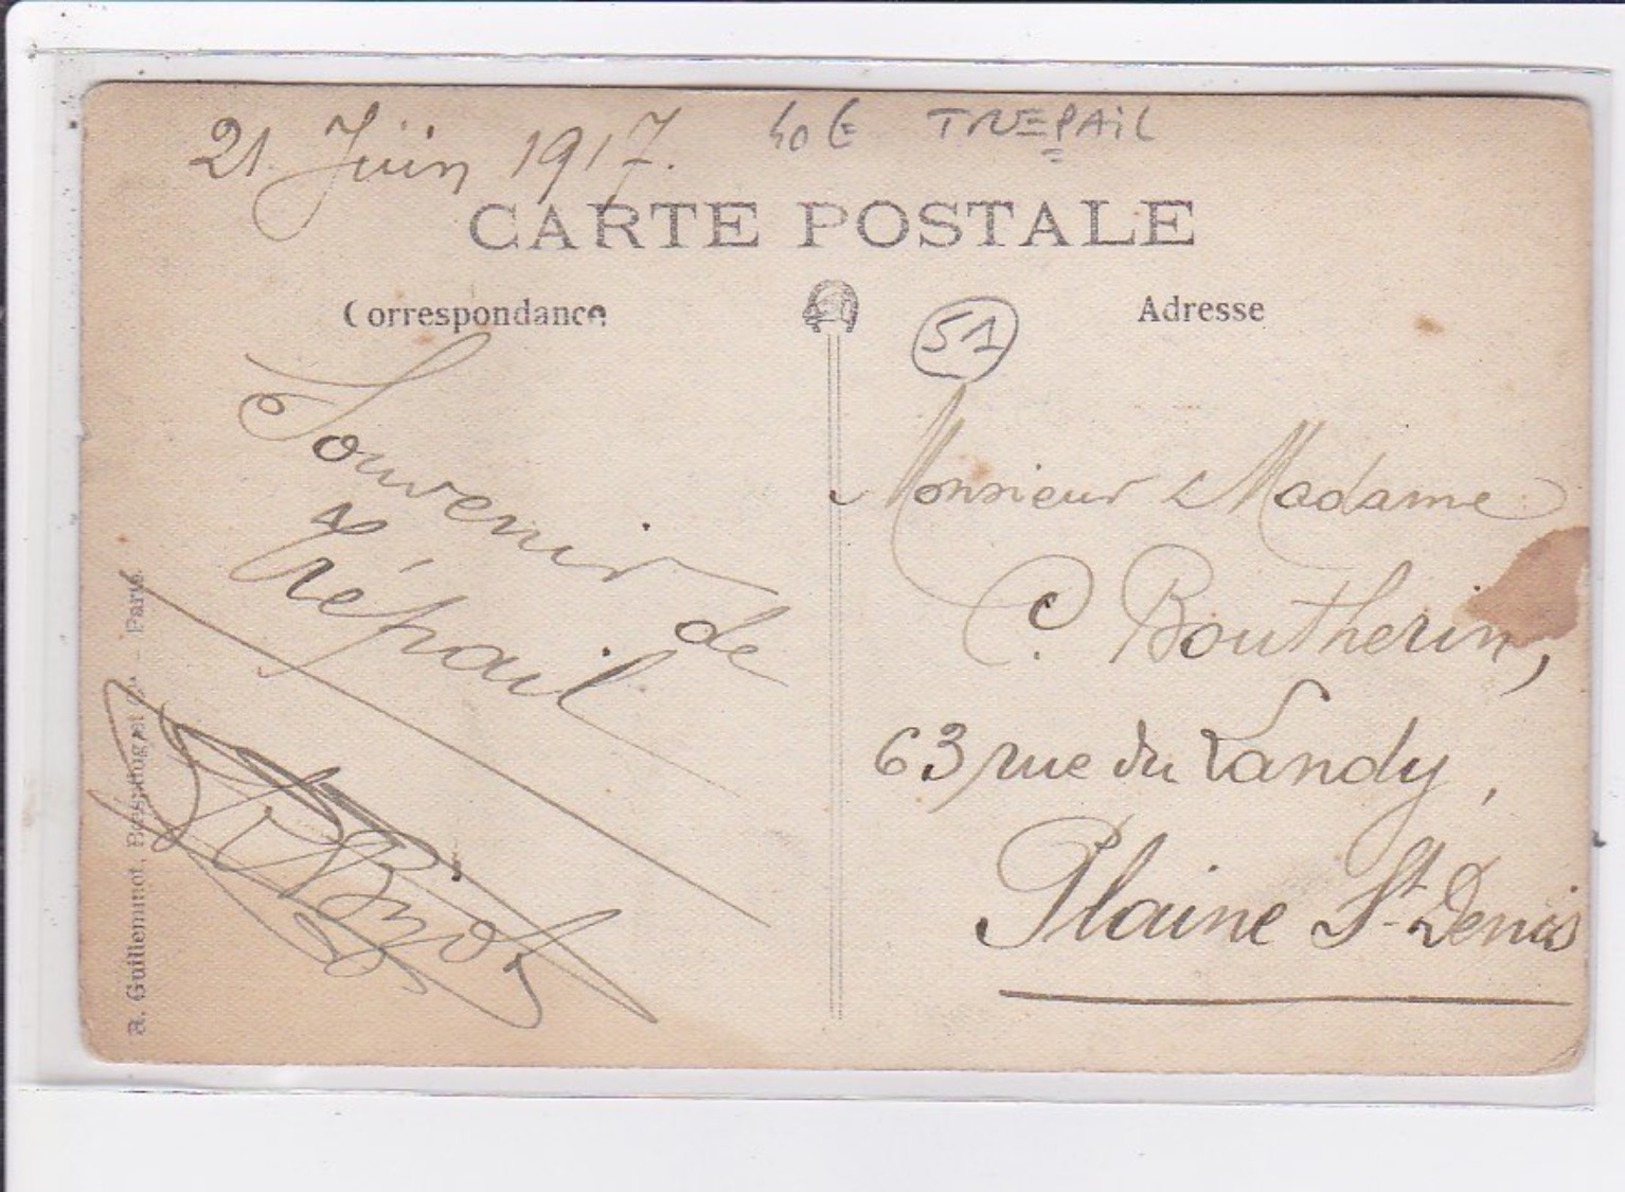 21 Juin 1917. 40 € TREPAIL
CARTE POSTALE
Correspondance
Adresse
51
Souvenir de
Trépail
Monsieur & Madame
C. Boutherin,
63 rue du Landy,
Plaine St-Denis
A. Guilleminot, Bœspflug et Cie – Paris.